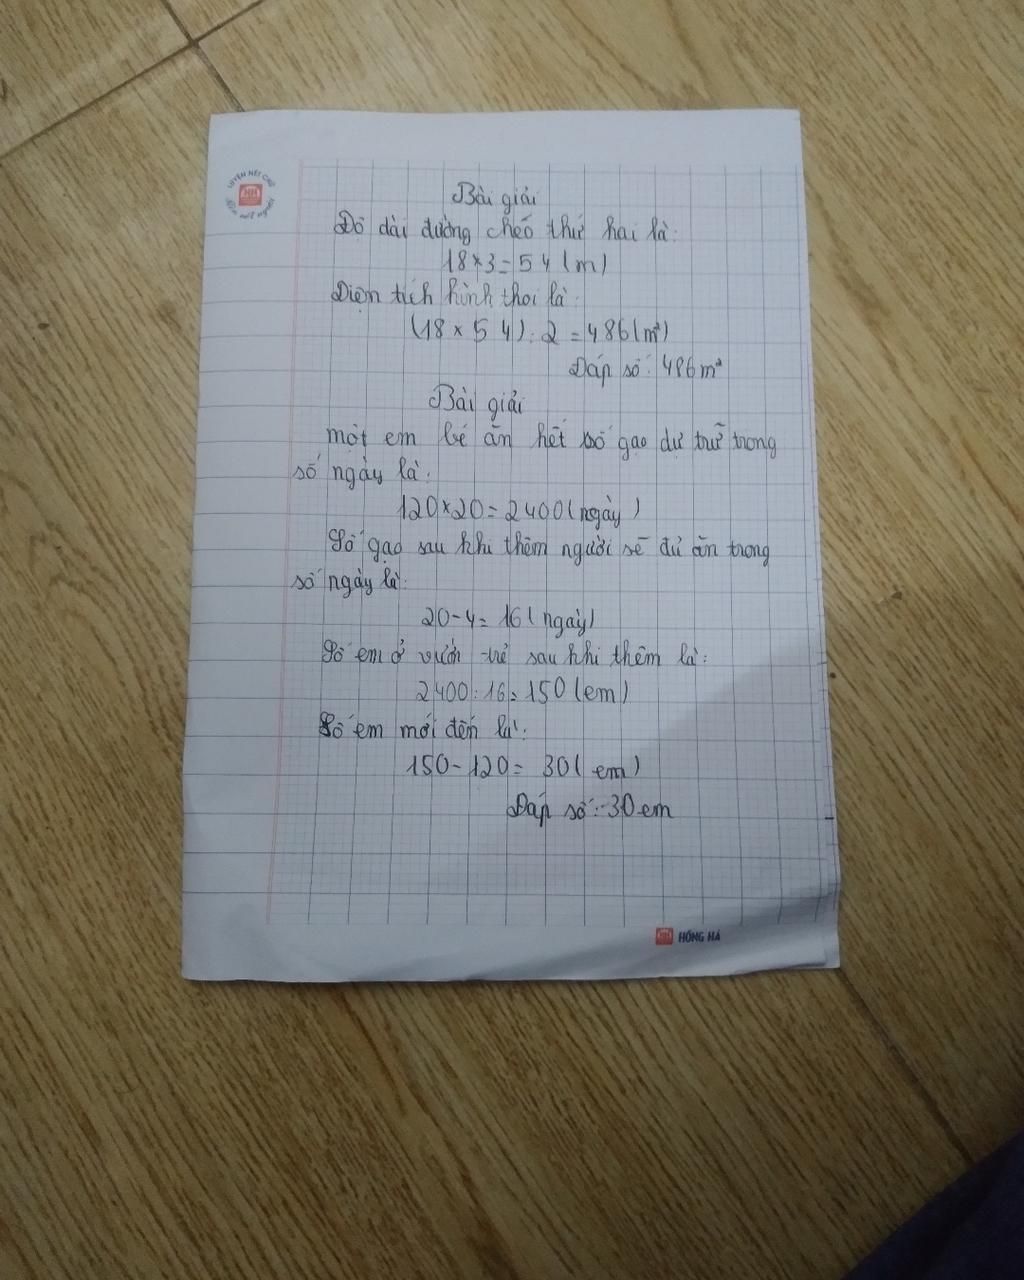 LUYỆN NÉT CHỮ
HH
Rèn nết người
Bài giải
Độ dài đường chéo thứ hai là:
18×3=54(m)
Diện tích hình thoi là:
(18×54):2=486(m²)
Đáp số: 486m²
Bài giải
một em bé ăn hết số gạo dự trữ trong
số ngày là:
120×20=2400(ngày)
Số gạo sau khi thêm người sẽ đủ ăn trong
số ngày là:
20-4=16(ngày)
Số em ở vườn trẻ sau khi thêm là:
2400:16=150(em)
Số em mới đến là:
150-120=30(em)
Đáp số:30em
HH HỒNG HÀ